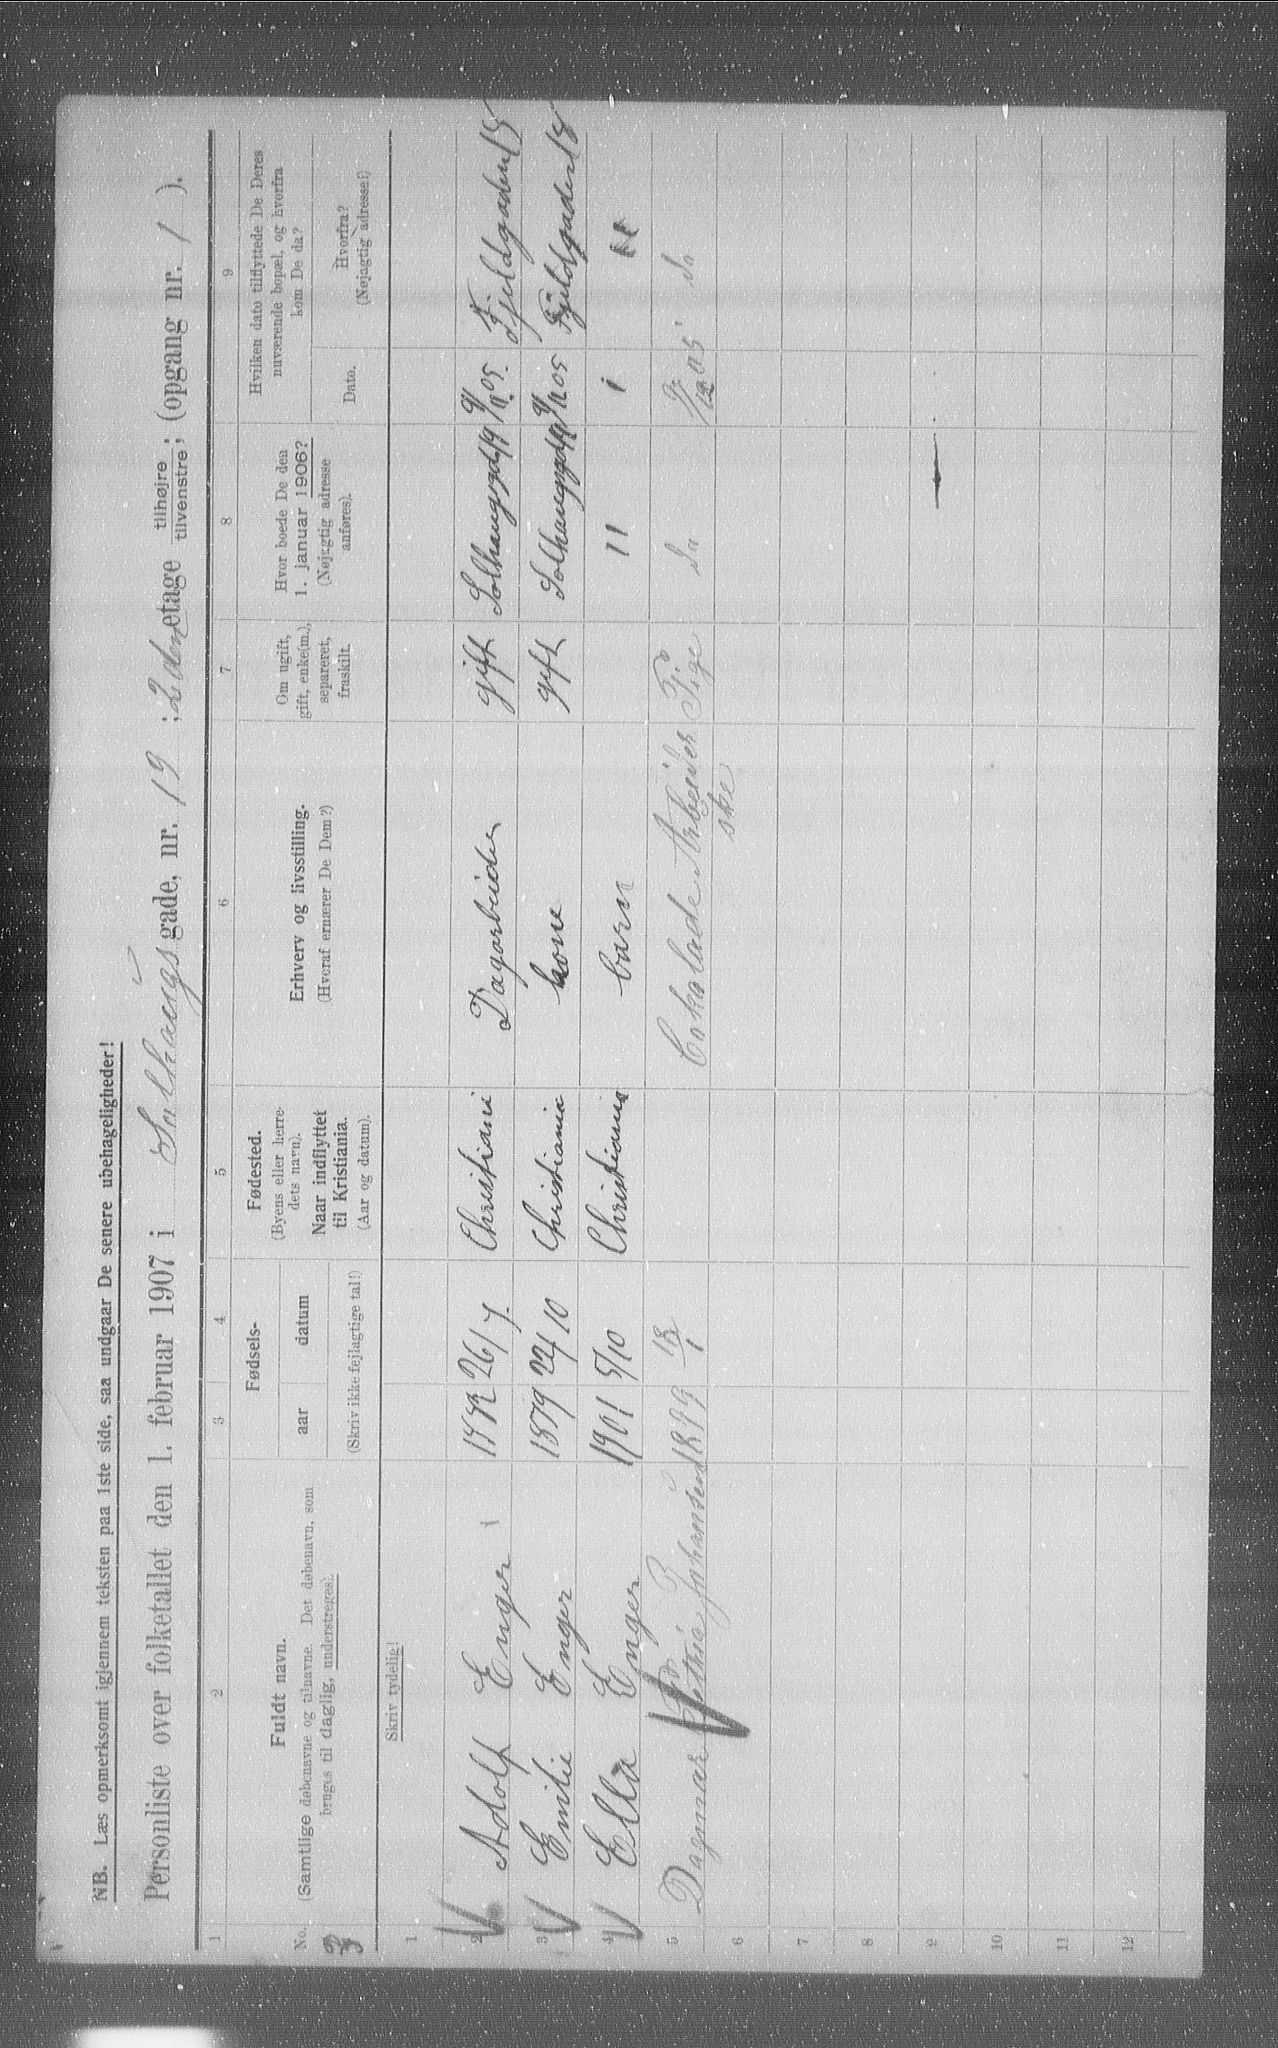 NB. Læs opmerksomt igjennem teksten paa 1ste side, saa undgaar De senere ubehageligheder!
Personliste over folketallet den 1. februar 1907 i Solhaugs gade, nr. 19 ; 2den etage tilhøjre tilvenstre ; (opgang nr. 1 ).
1 2 3 4 5 6 7 8 9
No. Fuldt navn.
(Samtlige døbenavne og tilnavne. Det døbenavn, som
bruges til daglig, understreges).
Fødsels-
aar datum
(Skriv ikke fejlagtige tal!)
Fødested.
(Byens eller herre-
dets navn).
Naar indflyttet
til Kristiania.
(Aar og datum).
Erhverv og livsstilling.
(Hvoraf ernærer De Dem?)
Om ugift,
gift, enke(m.),
separeret,
fraskilt.
Hvor boede De den
1. januar 1906?
(Nøjagtig adresse
anføres).
Hvilken dato tilflyttede De Deres
nuværende bopæl, og hvorfra
kom De da?
Dato.
Hvorfra?
(Nøjagtig adresse!)
Skriv tydelig!
1
2 Adolf Enger 26/7 Christiani Dagarbeider gift Fjeldgaden
3 Emilie Enger 1879 22/10 Christiania kone gift Fjeldgaden
4 Ella Enger 1901 5/10 Christiania barn " "
5 Dagmar Johansen Cokolade Arbeider Pige
ske
6
7
8
9
10
11
12